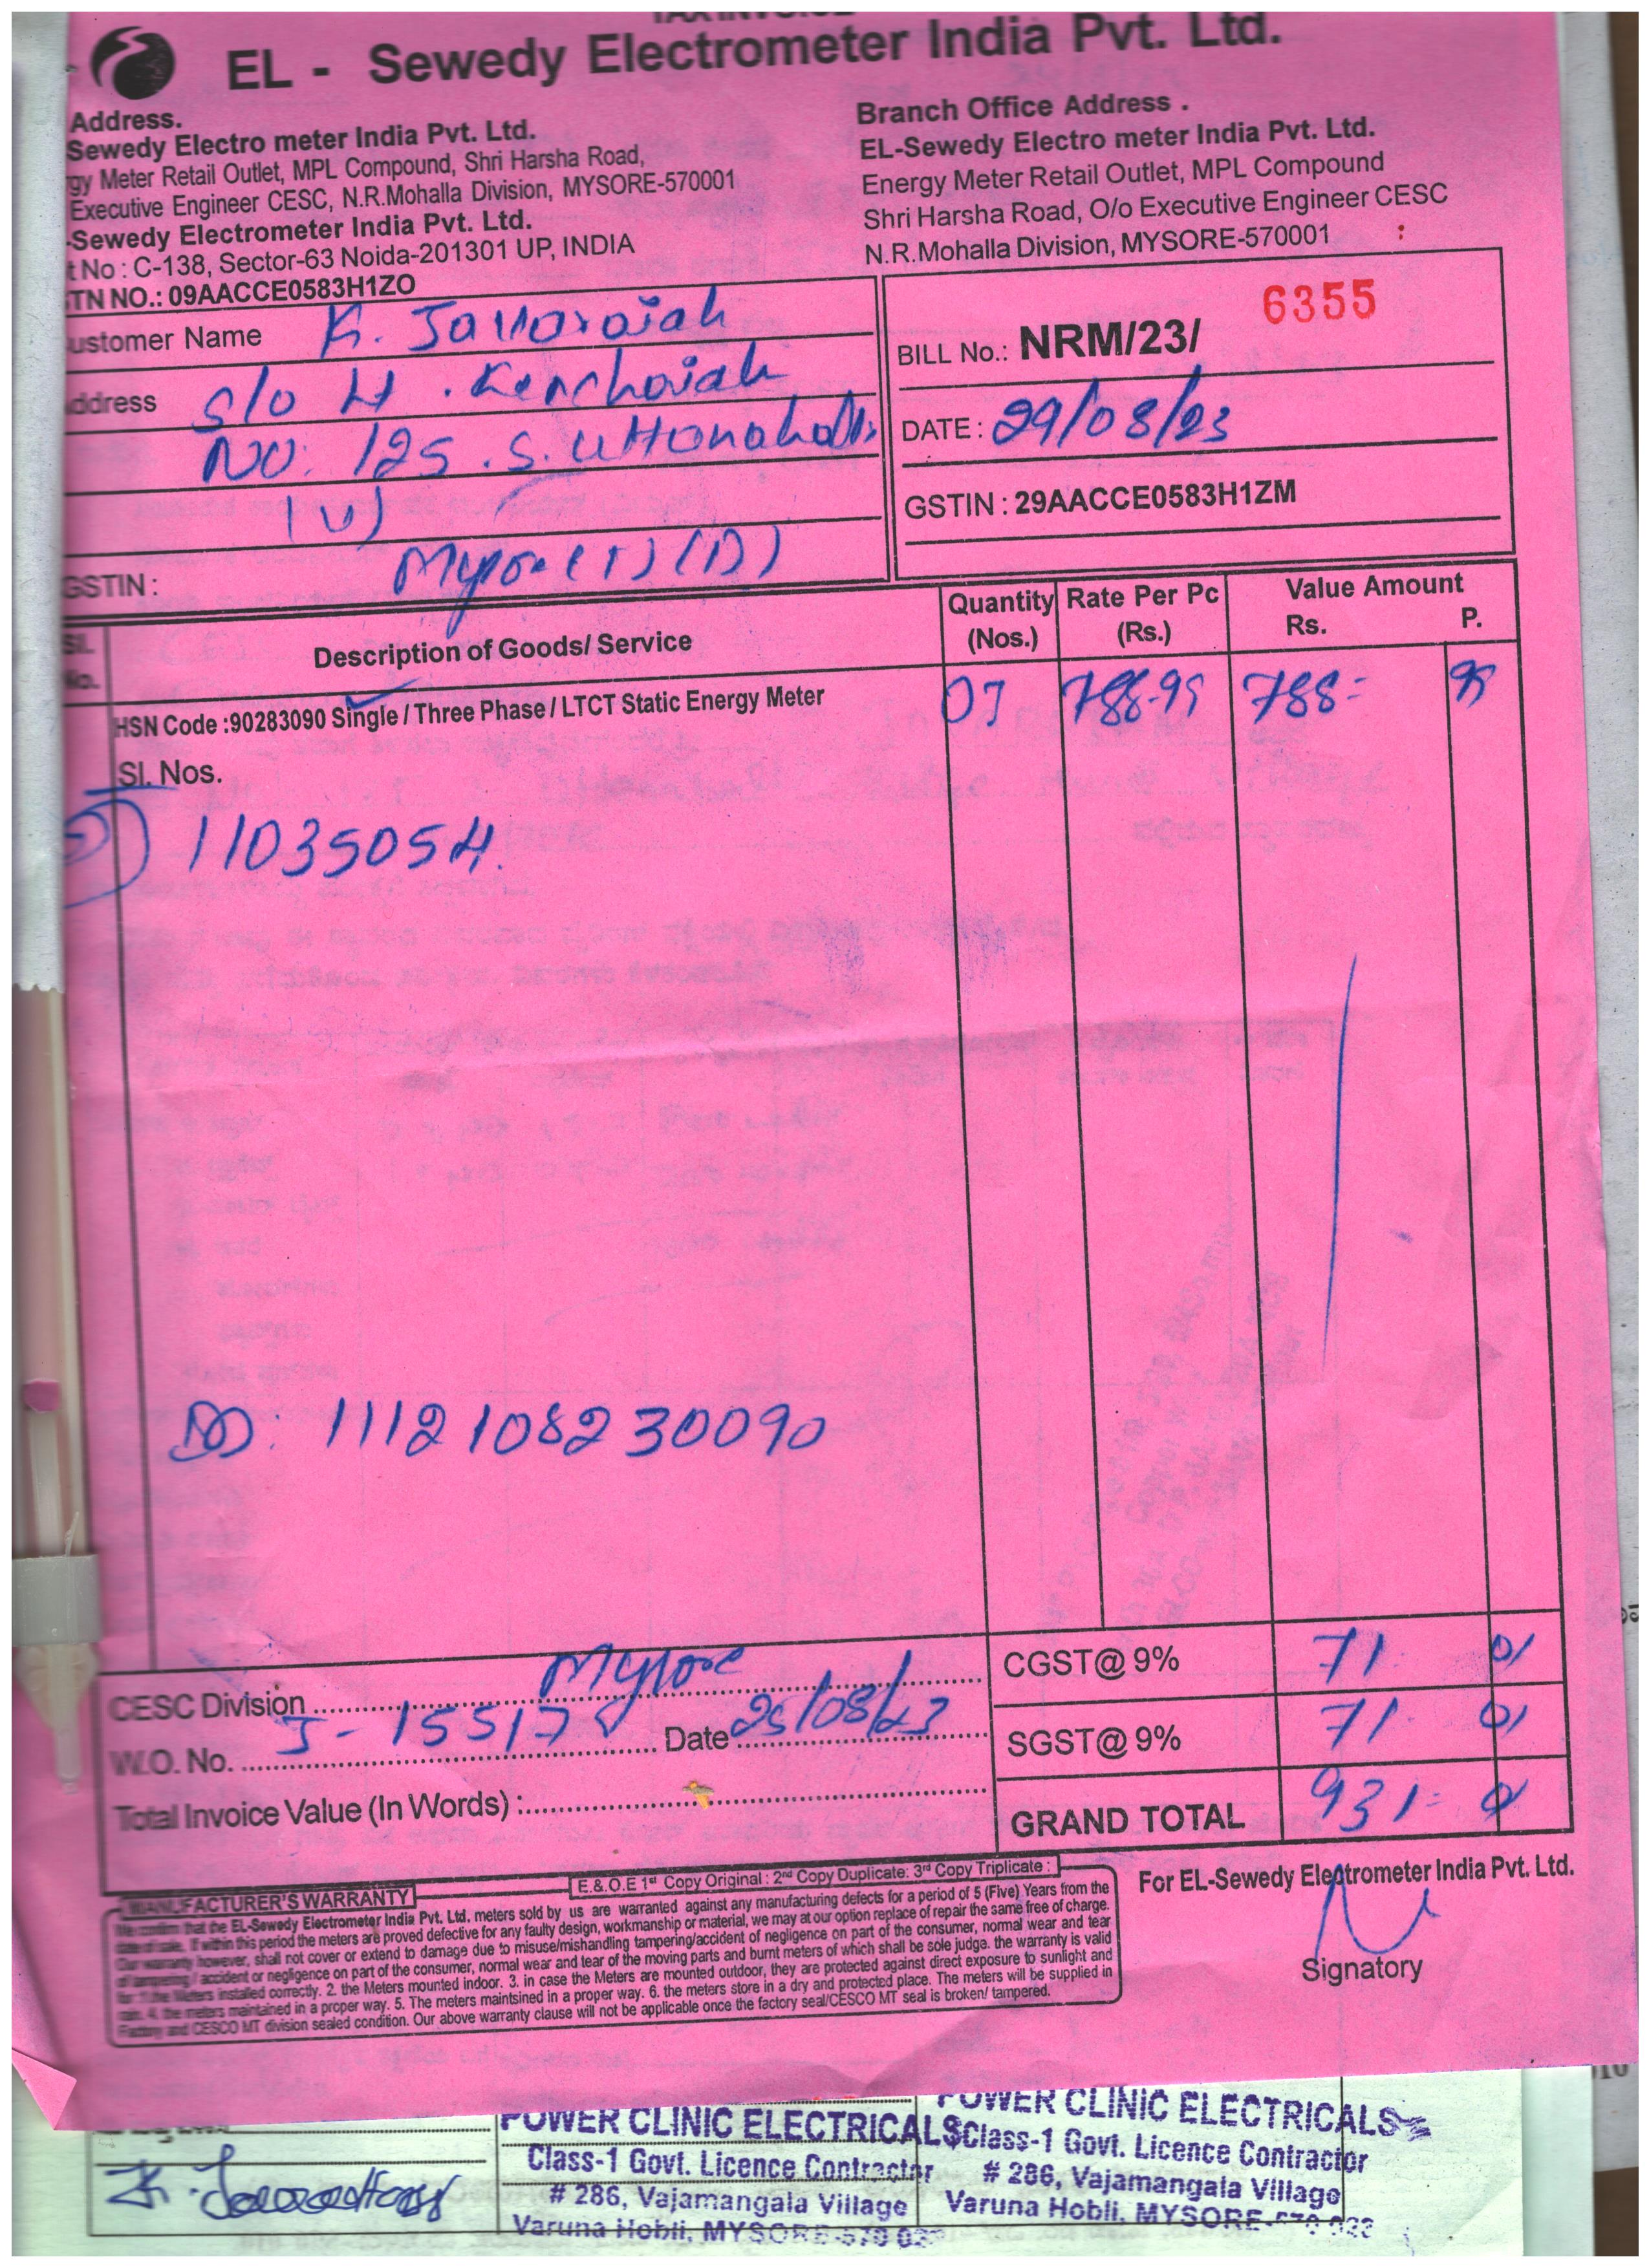 EL - Sewedy Electrometer India Pvt. Ltd.
Address.
Sewedy Electro meter India Pvt. Ltd.
gy Meter Retail Outlet, MPL Compound, Shri Harsha Road,
Executive Engineer CESC, N.R.Mohalla Division, MYSORE-570001
-Sewedy Electrometer India Pvt. Ltd.
t No : C-138, Sector-63 Noida-201301 UP, INDIA
TN NO.: 09AACCE0583H1ZO
Branch Office Address .
EL-Sewedy Electro meter India Pvt. Ltd.
Energy Meter Retail Outlet, MPL Compound
Shri Harsha Road, O/o Executive Engineer CESC
N.R.Mohalla Division, MYSORE-570001
ustomer Name K. Javaraiah
ddress S/o H. Kenchaiah
No: 125. S. Uttanahalli
(V)
GSTIN : Mysore (T) (D)
BILL No.: NRM/23/ 6355
DATE : 29/08/23
GSTIN : 29AACCE0583H1ZM
Sl. No. Description of Goods/ Service Quantity (Nos.) Rate Per Pc (Rs.) Value Amount Rs. P.
HSN Code :90283090 Single / Three Phase / LTCT Static Energy Meter 01 788-95 788= 95
Sl. Nos.
11035054
DD: 1112108230090
CESC Division Mysore
W.O. No. J-15517 Date 25/08/23
Total Invoice Value (In Words) :
CGST@ 9% 71 01
SGST@ 9% 71 01
GRAND TOTAL 931= 01
E.& O.E 1st Copy Original : 2nd Copy Duplicate: 3rd Copy Triplicate :
MANUFACTURER'S WARRANTY
We confirm that the EL-Sewedy Electrometer India Pvt. Ltd. meters sold by us are warranted against any manufacturing defects for a period of 5 (Five) Years from the
date of sale. If within this period the meters are proved defective for any faulty design, workmanship or material, we may at our option replace of repair the same free of charge.
Our warranty however, shall not cover or extend to damage due to misuse/mishandling tampering/accident of negligence on part of the consumer, normal wear and tear
of tampering / accident or negligence on part of the consumer, normal wear and tear of the moving parts and burnt meters of which shall be sole judge. the warranty is valid
for 1 the Meters installed correctly. 2. the Meters mounted indoor. 3. in case the Meters are mounted outdoor, they are protected against direct exposure to sunlight and
rain. 4. the meters maintained in a proper way. 5. The meters maintsined in a proper way. 6. the meters store in a dry and protected place. The meters will be supplied in
Factory and CESCO MT division sealed condition. Our above warranty clause will not be applicable once the factory seal/CESCO MT seal is broken/ tampered.
For EL-Sewedy Electrometer India Pvt. Ltd.
Signatory
POWER CLINIC ELECTRICALS
Class-1 Govt. Licence Contractor
# 286, Vajamangala Village
Varuna Hobli, MYSORE-570
POWER CLINIC ELECTRICALS
Class-1 Govt. Licence Contractor
# 286, Vajamangala Village
Varuna Hobli, MYSORE-